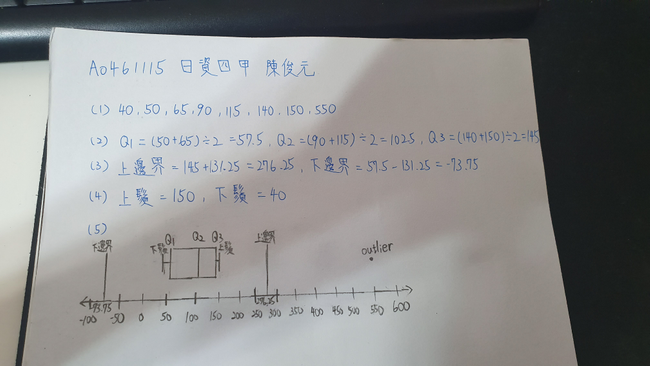 A0461115 日資四甲 陳俊元
(1) 40, 50, 65, 90, 115, 140, 150, 550
(2) Q1 = (50+65)÷2 = 57.5, Q2 = (90+115)÷2 = 102.5, Q3 = (140+150)÷2 = 145
(3) 上邊界 = 145+131.25 = 276.25, 下邊界 = 57.5-131.25 = -73.75
(4) 上鬚 = 150, 下鬚 = 40
(5)
下邊界 下鬚 Q1 Q2 Q3 上鬚 上邊界 outlier
-73.75 276.25
-100 -50 0 50 100 150 200 250 300 350 400 450 500 550 600